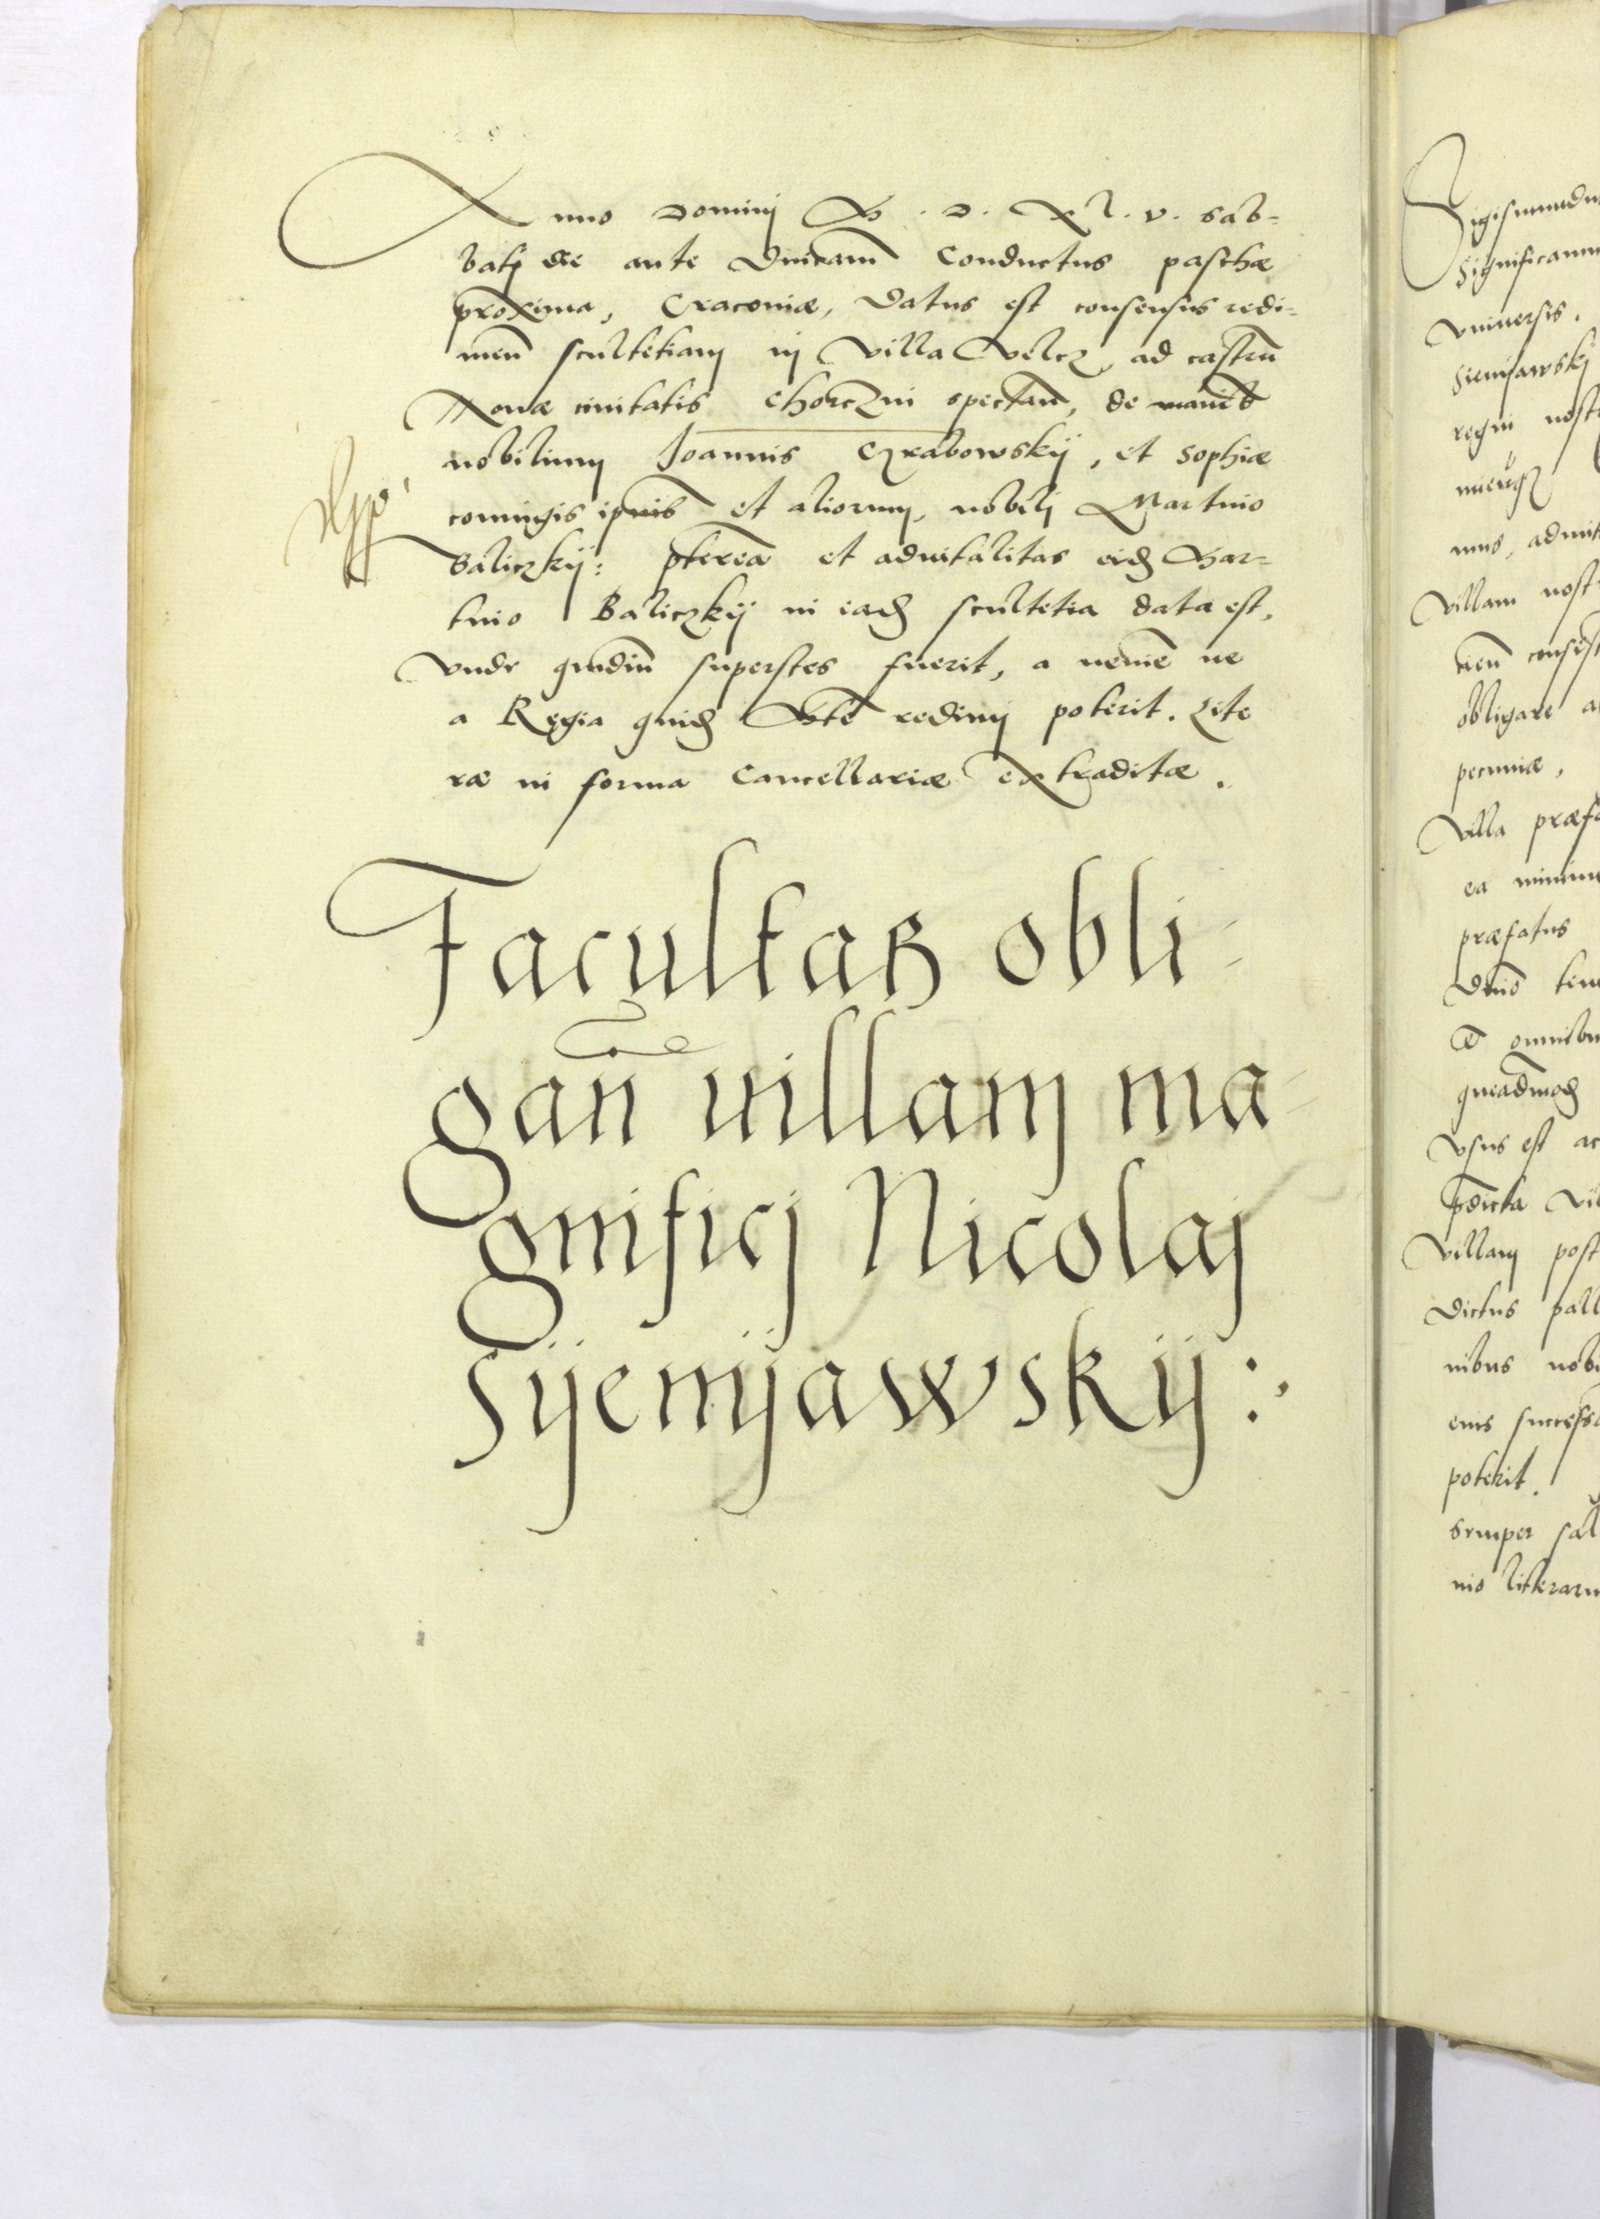 Anno Dominj M. D. XL. V. Sab-
batj die ante Dnicam Conductus paschæ
proxima, Cracoviæ, Datus est consensus redi-
men scultetiam in Villa Welcz, ad castru
Novæ civitatis Chorczin spectan, de manib
nobilium Joannis Czrabowskij, et Sophiæ
coniugis ipsius et aliorum, nobilj Martino
Baliczkij: pterea et advitalitas eid Mar-
tino Baliczkij in ead scultetia data est,
Vnde quidiu superstes fuerit, a nemie ne
a Regia quid Mte redimj poterit. Lite
ræ in forma Cancellariæ extraditæ.
Facultas obli-
gan uillam ma-
gnificj Nicolaj
Sijenijawskij:
Sigismundu
Significamu
Vniversis.
Sienijawskj
regni nost
mus, admit
Villam nost
cien consens
obligare a
pecuniæ,
Villa præf
ea minim
præfatus
Dnus ten
et omnibu
queadmod
Vsus est ac
pdicta Vil
Villam post
Dictus pall
nibus nobi
eius success
poterit.
Semper sal
nio litterarum